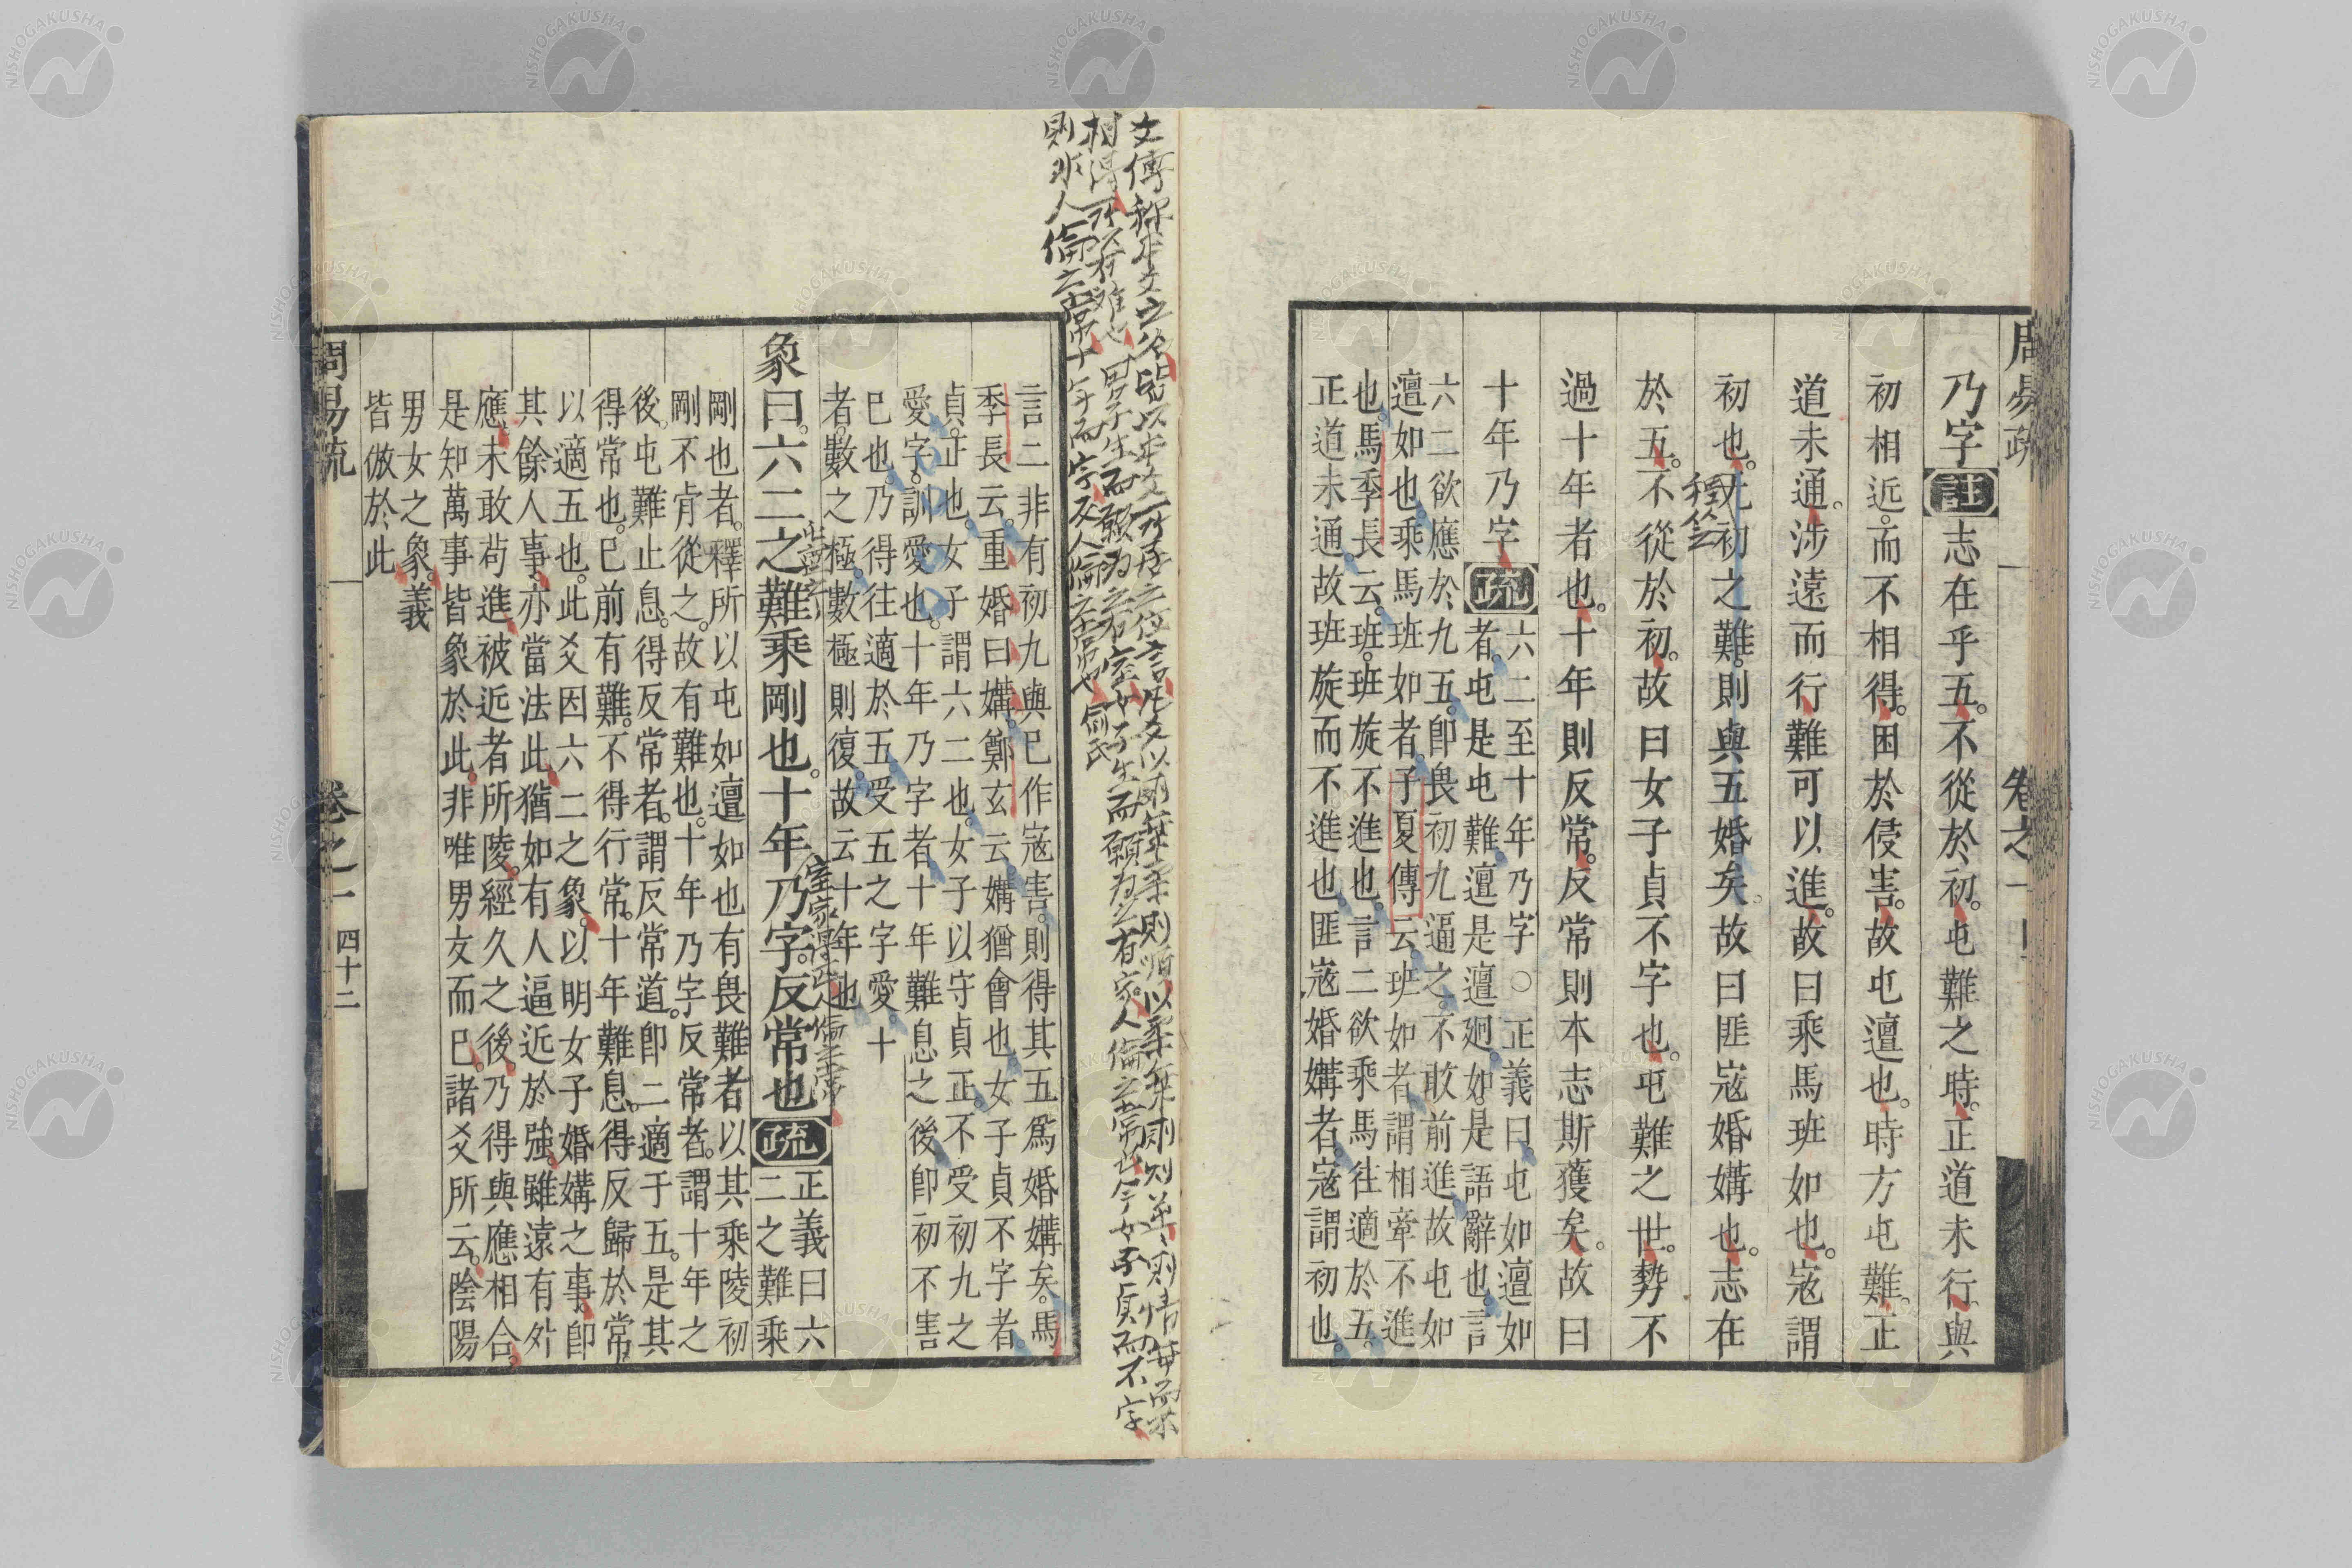 周易疏 卷之一
乃字 註 志在乎五。不從於初。屯難之時。正道未行。與
初相近。而不相得。困於侵害。故屯邅也。時方屯難。正
道未通。涉遠而行。難可以進。故曰乘馬班如也。寇謂
初也。无初之難。則與五婚矣。故曰匪寇婚媾也。志在
於五。不從於初。故曰女子貞不字也。屯難之世。勢不
過十年者也。十年則反常。反常則本志斯獲矣。故曰
十年乃字 疏
六二至十年乃字○正義曰屯如邅如
者。屯是屯難邅是邅廻。如是語辭也。言
六二欲應於九五。即畏初九逼之。不敢前進故屯如
邅如也。乘馬班如者。子夏傳云。班如者謂相牽不進
也。馬季長云。班。班旋不進也。言二欲乘馬往適於五。
正道未通。故班旋而不進也。匪寇婚媾者。寇謂初也。
言二非有初九與已作寇害。則得其五爲婚媾矣。馬
季長云。重婚曰媾。鄭玄云。媾猶會也。女子貞不字者。
貞。正也。女子謂六二也。女子以守貞正。不受初九之
愛。字。訓愛也。十年乃字者。十年難息之後。即初不害
已也。乃得往適於五受五之字愛。十
者。數之極。數極則復。故云十年也
象曰。六二之難乘剛也。十年乃字。反常也 疏
正義曰六
二之難乘
剛也者。釋所以屯如邅如也有畏難者以其乘陵初
剛不肯從之。故有難也。十年乃字反常者。謂十年之
後。屯難止息。得反常者。謂反常道。即二適于五。是其
得常也。已前有難。不得行常。十年難息。得反歸於常
以適五也。此爻因六二之象。以明女子婚媾之事。即
其餘人事。亦當法此。猶如有人逼近於強。雖遠有外
應。未敢苟進。被近者所陵。經久之後。乃得與應相合。
是知萬事皆象於此。非唯男女而已。諸爻所云。陰陽
男女之象。義
皆倣於此
周易疏 卷之一 四十二
則非人倫之常十年而字反人倫之常也